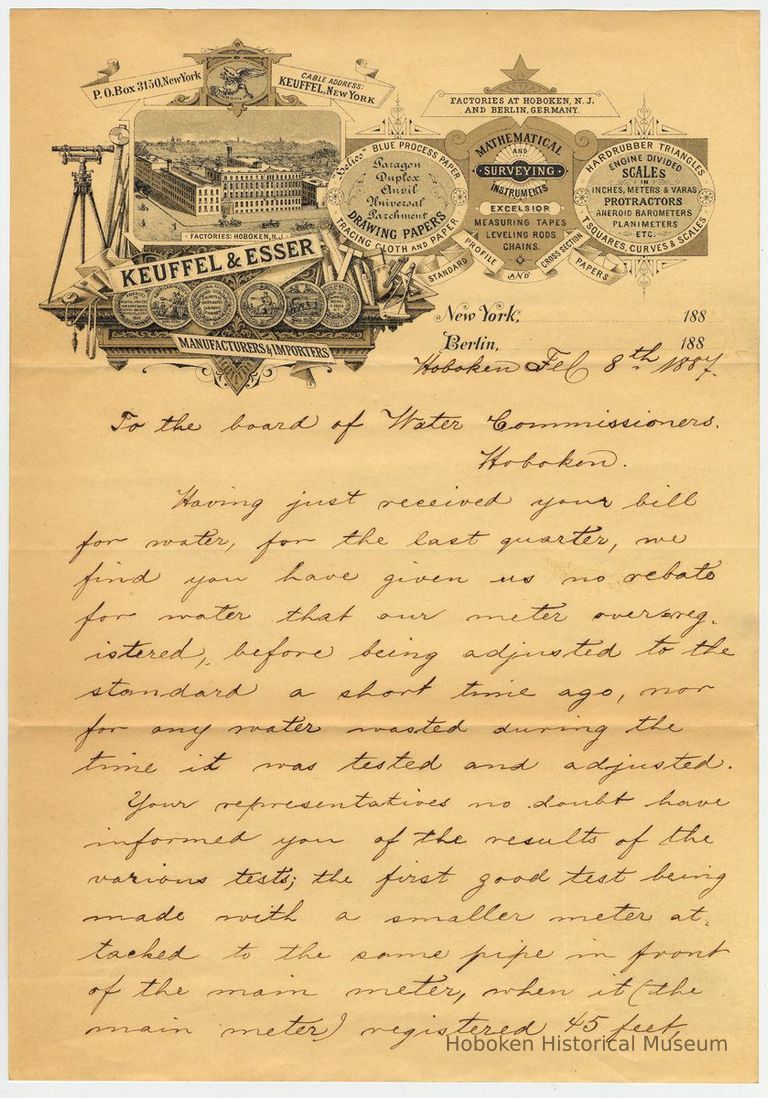 P.O.Box 3150, New York
CABLE ADDRESS:
KEUFFEL, New York
FACTORIES: HOBOKEN, N.J.
KEUFFEL & ESSER
MANUFACTURERS & IMPORTERS
FACTORIES AT HOBOKEN, N. J.
AND BERLIN, GERMANY.
"Helios" BLUE PROCESS PAPER
Paragon
Duplex
Anvil
Universal
Parchment
DRAWING PAPERS
TRACING CLOTH AND PAPER
MATHEMATICAL
AND
SURVEYING
INSTRUMENTS
EXCELSIOR
MEASURING TAPES
LEVELING RODS
CHAINS.
STANDARD PROFILE AND CROSS SECTION PAPERS
HARDRUBBER TRIANGLES
ENGINE DIVIDED
SCALES
IN
INCHES, METERS & VARAS
PROTRACTORS
ANEROID BAROMETERS
PLANIMETERS
ETC.
T SQUARES, CURVES & SCALES
New York, 188
Berlin, 188
Hoboken Feb 8th 1887.
To the board of Water Commissioners.
Hoboken.
Having just received your bill
for water, for the last quarter, we
find you have given us no rebate
for water that our meter over-reg-
istered, before being adjusted to the
standard a short time ago, nor
for any water wasted during the
time it was tested and adjusted.
Your representatives no doubt have
informed you of the results of the
various tests; the first good test being
made with a smaller meter at-
tacked to the same pipe in front
of the main meter, when it (the
main meter) registered 45 feet,
Hoboken Historical Museum